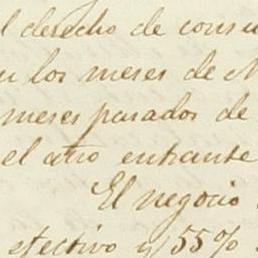 l derecho de consu
n los meses de M
meses pasados de
el año entrante
El negocio
efectivo y 55%